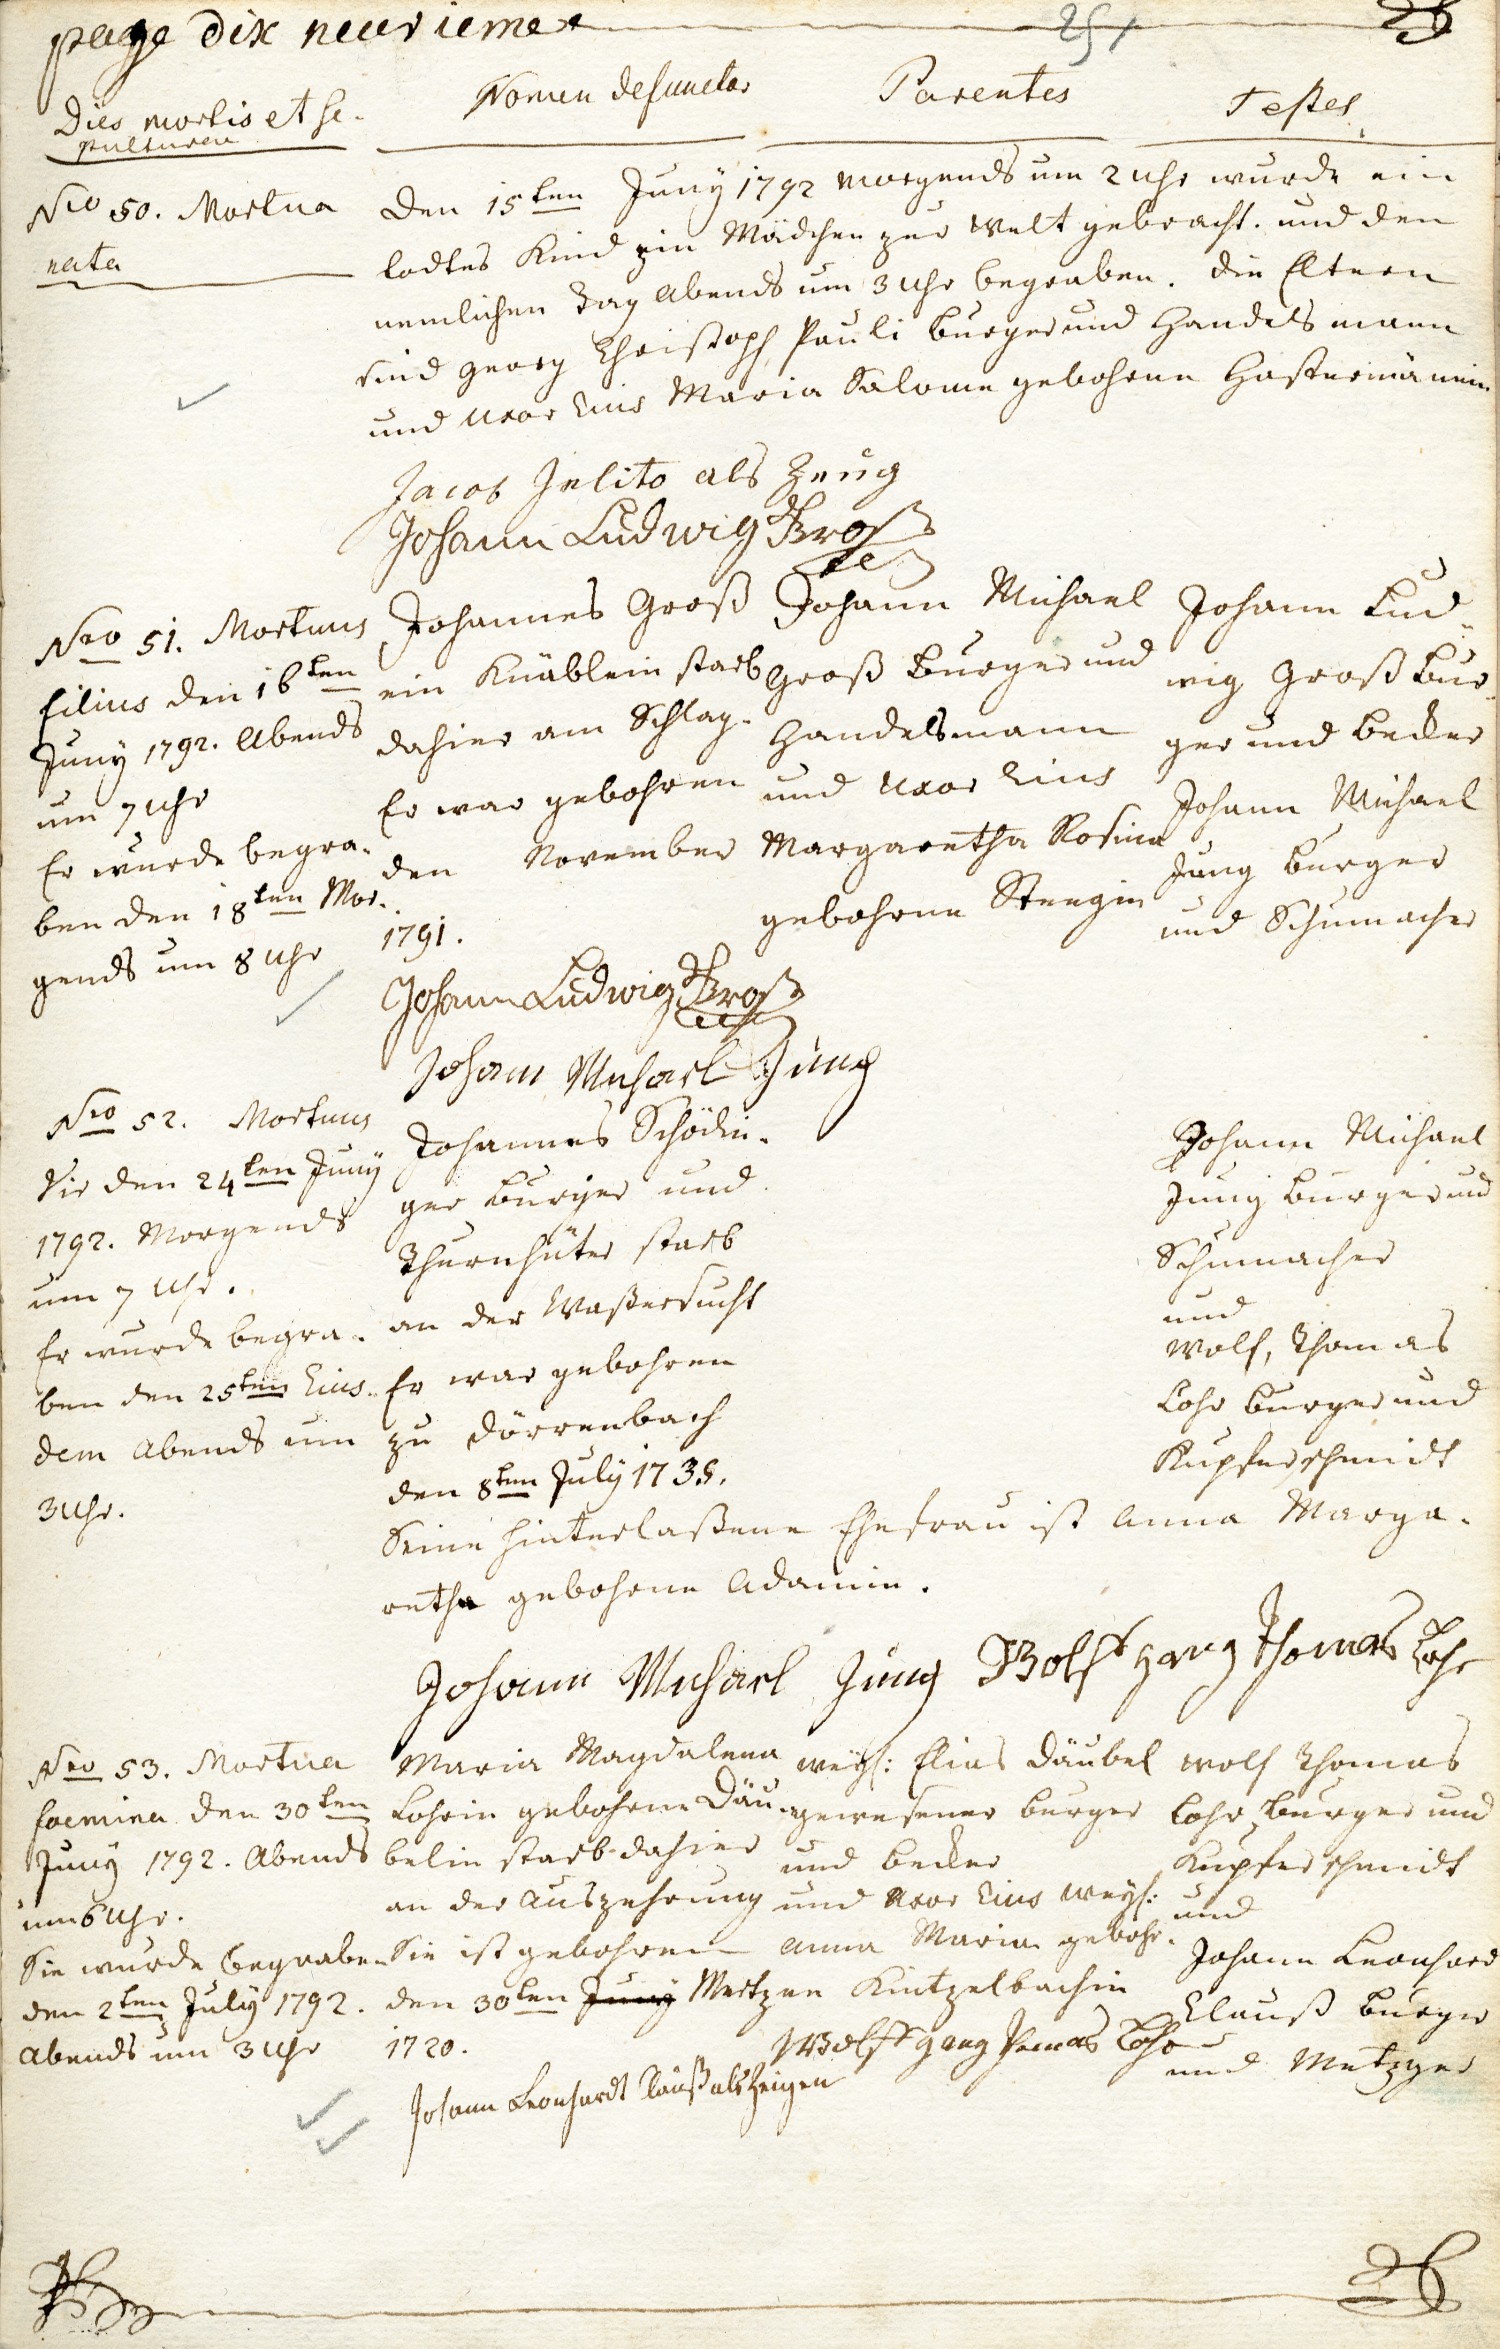 page dix neuvieme
25
Dies mortis et se-
pulturae
Nomen defunctor
Parentes
Testes
Nro 50. Mortua
nata
Den 15ten Juny 1792 morgends um 2 Uhr wurde ein
todtes Kind ein Mädchen zur Welt gebracht. und den
nemlichen Tag Abends um 3 Uhr begraben. Die Eltern
sind Georg Christoph Pauli Burger und Handelsmann
und Uxor Eius Maria Salome gebohrne
Jacob Jelito als Zeug
Johann Ludwig Groß
Nro 51. Mortuus
filius den 16ten
Juny 1792. Abends
um 7 Uhr
Er wurde begra-
ben den 18ten Mor-
gends um 8 Uhr
Johannes Groß
ein Knäblein starb
dahier am Schlag.
Er war gebohren
den November
1791.
Johann Michael
Groß Burger und
Handelsmann
und Uxor Eius
Margaretha Rosina
gebohrne
Johann Lud-
wig Groß Bur-
ger und Becker
Johann Michael
Jung Burger
und Schumacher
Johann Ludwig Groß
Johann Michael Jung
Nro 52. Mortuus
Vir den 24ten Juny
1792. Morgends
um 7 Uhr.
Er wurde begra-
ben den 25ten Eius-
dem Abends um
3 Uhr.
Johannes Schödin-
ger Burger und
Thurnhüter starb
an der Waßersucht
Er war gebohren
zu Dörrenbach
den 8ten July 1735.
Seine hinterlaßene Ehefrau ist Anna Marga-
retha gebohrne Adamin.
Johann Michael
Jung Burger und
Schumacher
und
Wolf, Thomas
Lohr Burger und
Kupferschmidt
Johann Michael Jung Wolffgang Thomas Lohr
Nro 53. Mortua
foemina den 30ten
Juny 1792. Abends
um 6 Uhr.
Sie wurde begraben
den 2ten July 1792.
Abends um 3 Uhr
Maria Magdalena
Lohrin gebohrne Däu-
belin starb dahier
an der Auszehrung
Sie ist gebohren
den 30ten Juny Mertz
1720.
weyl: Elias Däubel
gewesener Burger
und Becker
und Uxor Eius weyl:
Anna Maria gebohr-
ne Kintzelbachin
Wolf Thomas
Lohr, Burger und
Kupferschmidt
und
Johann Leonhard
Clauß Burger
und Metzger
Wolffgang Thomas Lohr
Johann Leonhardt Clauß als Zeigen